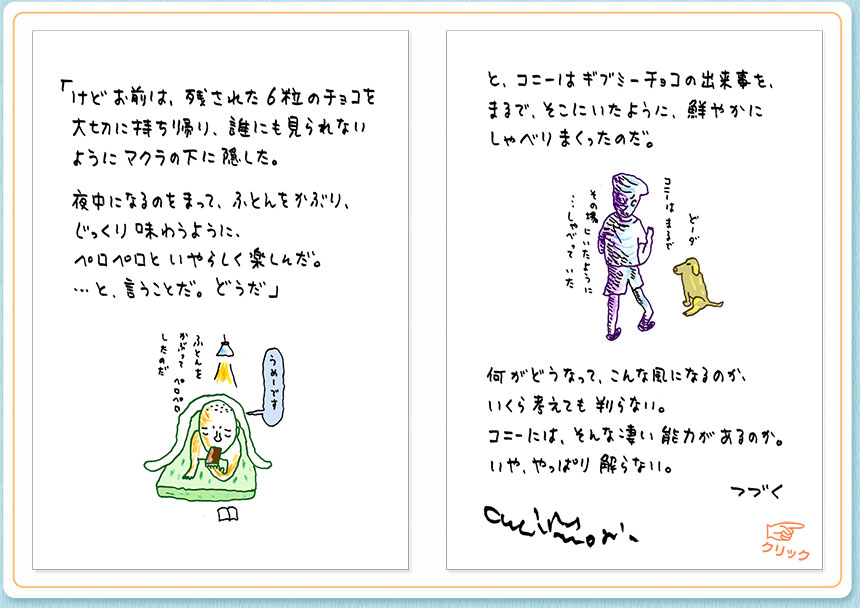 「けどお前は、残された6粒のチョコを
大切に持ち帰り、誰にも見られない
ようにマクラの下に隠した。
夜中になるのをまって、ふとんをかぶり、
じっくり味わうように、
ペロペロといやらしく楽しんだ。
…と、言うことだ。どうだ」
うめーです
ふとんを
かぶって ペロペロ
したのだ
と、コニーはギブミーチョコの出来事を、
まるで、そこにいたように、鮮やかに
しゃべりまくったのだ。
どーダ
コニーは まるで
その場にいたように
…しゃべって いた
何がどうなって、こんな風になるのか、
いくら考えても判らない。
コニーには、そんな凄い能力があるのか。
いや、やっぱり解らない。
つづく
クリック